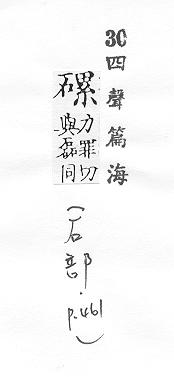 30四聲篇海
磥
力罪切
與磊同
(石部.
p.461)